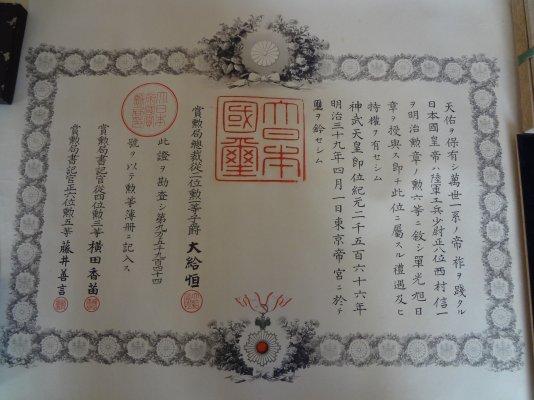 天佑ヲ保有シ萬世一系ノ帝祚ヲ踐タル
日本國皇帝ハ陸軍工兵少尉正八位西村信一
ヲ明治勲章ノ勲六等ニ敘シ單光旭日
章ヲ授與ス即チ此位ニ屬スル禮遇及ヒ
特權ヲ有セシム
神武天皇即位紀元二千五百六十六年
明治三十九年四月一日東京帝宮ニ於テ
璽ヲ鈐セシム
大日本國璽
賞勲局總裁從二位勲一等子爵 大給恒
此證ヲ勘査シ第九万五千九百四十四
號ヲ以テ勲等簿册ニ記入ス
賞勲局書記官從四位勲三等 横田香苗
賞勲局書記官正六位勲五等 藤井善言